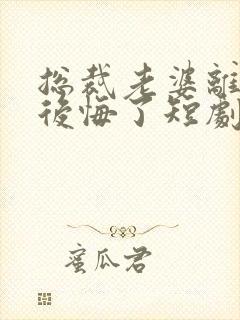 总裁老婆離
後悔了短劇
蜜瓜君